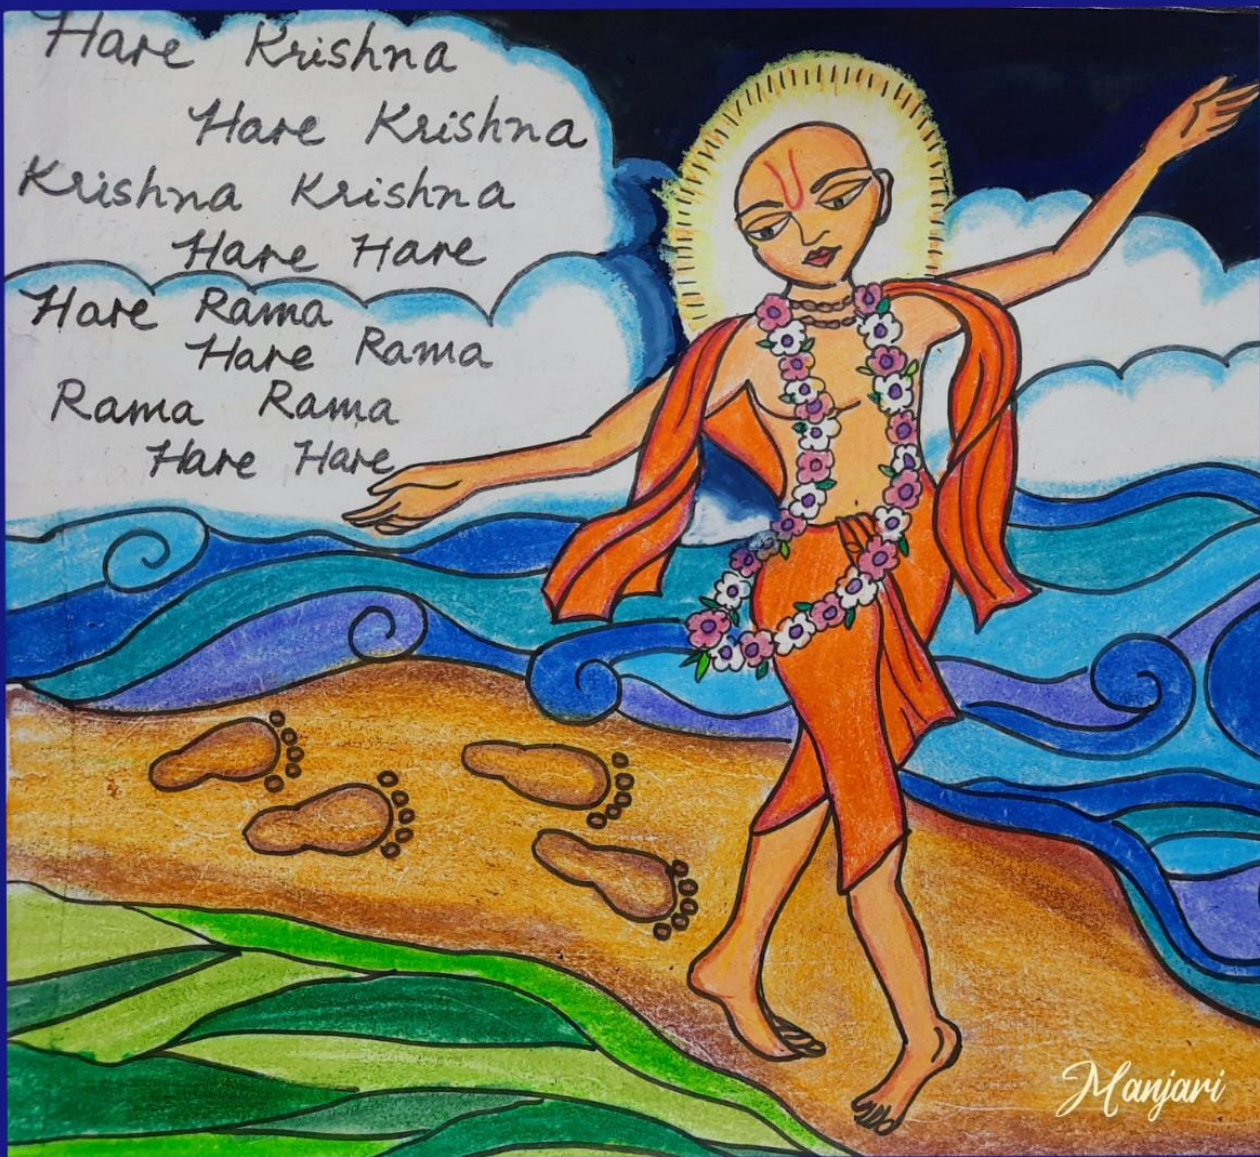 Hare Krishna
Hare Krishna
Krishna Krishna
Hare Hare
Hare Rama
Hare Rama
Rama Rama
Hare Hare
Manjari